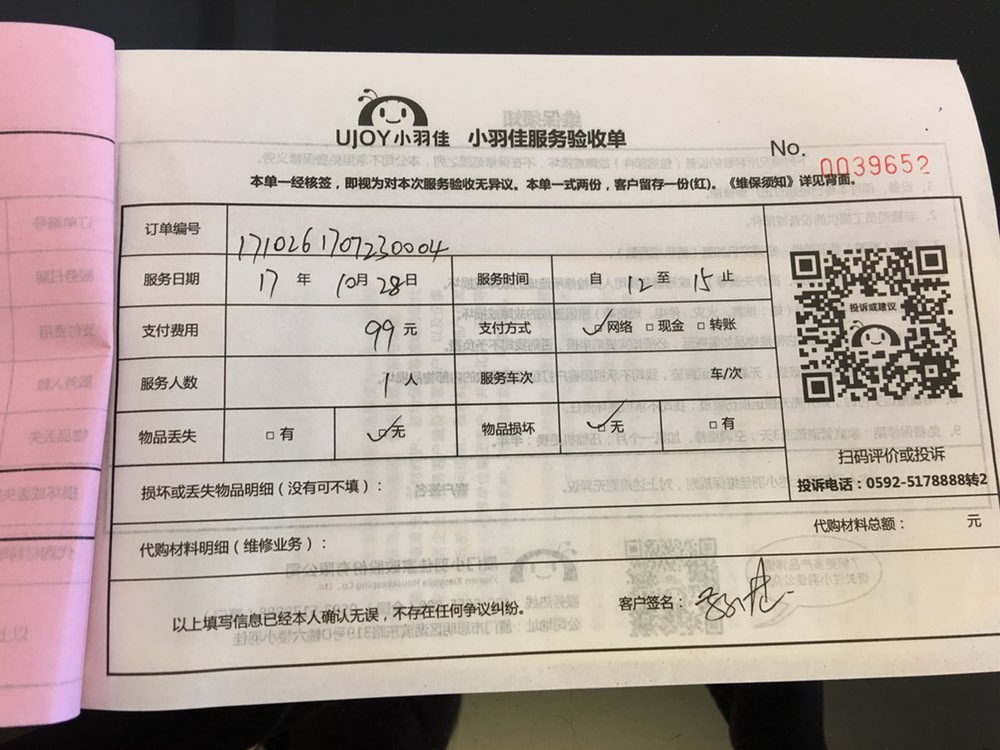 UJOY小羽佳 小羽佳服务验收单
No. 0039652
本单一经核签，即视为对本次服务验收无异议。本单一式两份，客户留存一份(红)。《维保须知》详见背面。
订单编号 1710261707230004
服务日期 17 年 10月 28日 服务时间 自 12 至 15 止
支付费用 99 元 支付方式 ☑网络 □现金 □转账
服务人数 1 人 服务车次 车/次
物品丢失 □有 ☑无 物品损坏 ☑无 □有
投诉或建议
扫码评价或投诉
投诉电话：0592-5178888转2
损坏或丢失物品明细（没有可不填）：
代购材料总额： 元
代购材料明细（维修业务）：
以上填写信息已经本人确认无误，不存在任何争议纠纷。
客户签名：